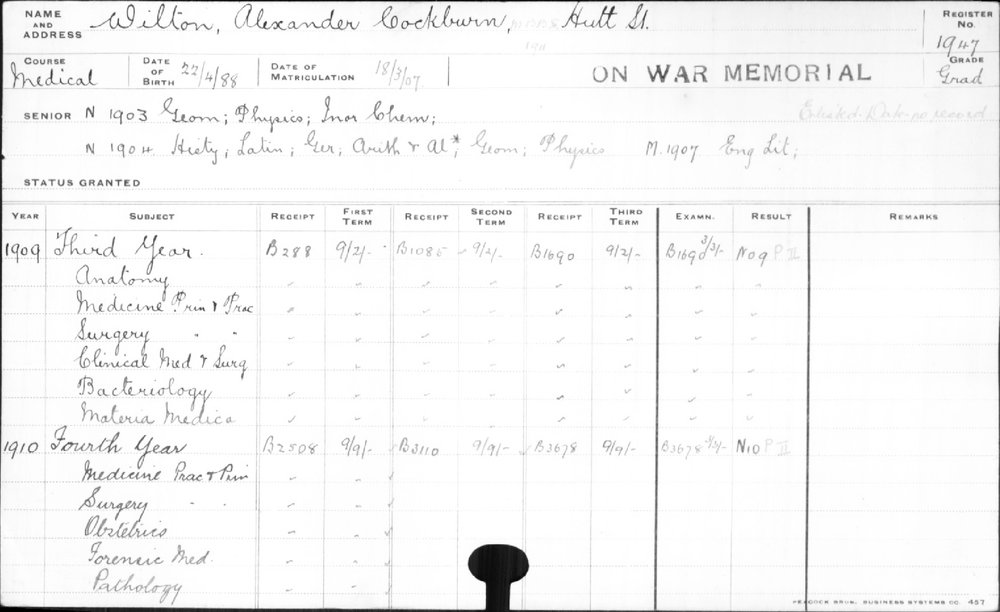 NAME AND ADDRESS Wilton, Alexander Cockburn, Hutt St. REGISTER No. 1947
COURSE Medical DATE OF BIRTH 22/4/88 DATE OF MATRICULATION 18/3/07 ON WAR MEMORIAL GRADE Grad
SENIOR N 1903 Geom; Physics; Inor Chem; Enlisted. Date no record
N 1904. Histy; Latin; Ger; Arith & Al*; Geom; Physics M. 1907 Eng Lit;
STATUS GRANTED
YEAR SUBJECT RECEIPT FIRST TERM RECEIPT SECOND TERM RECEIPT THIRD TERM EXAMN. RESULT REMARKS
1909 Third Year. B288 9/2/- B1085 9/2/- B1690 9/2/- B1690 3/3/- N09 P II
Anatomy
Medicine Prin & Prac
Surgery " "
Clinical Med & Surg
Bacteriology
Materia Medica
1910 Fourth Year B2508 9/9/- B3110 9/9/- B3678 9/9/- B3678 N10 P II
Medicine Prac & Prin
Surgery " "
Obstetrics
Forensic Med.
Pathology
PEACOCK BROS. BUSINESS SYSTEMS CO. 457